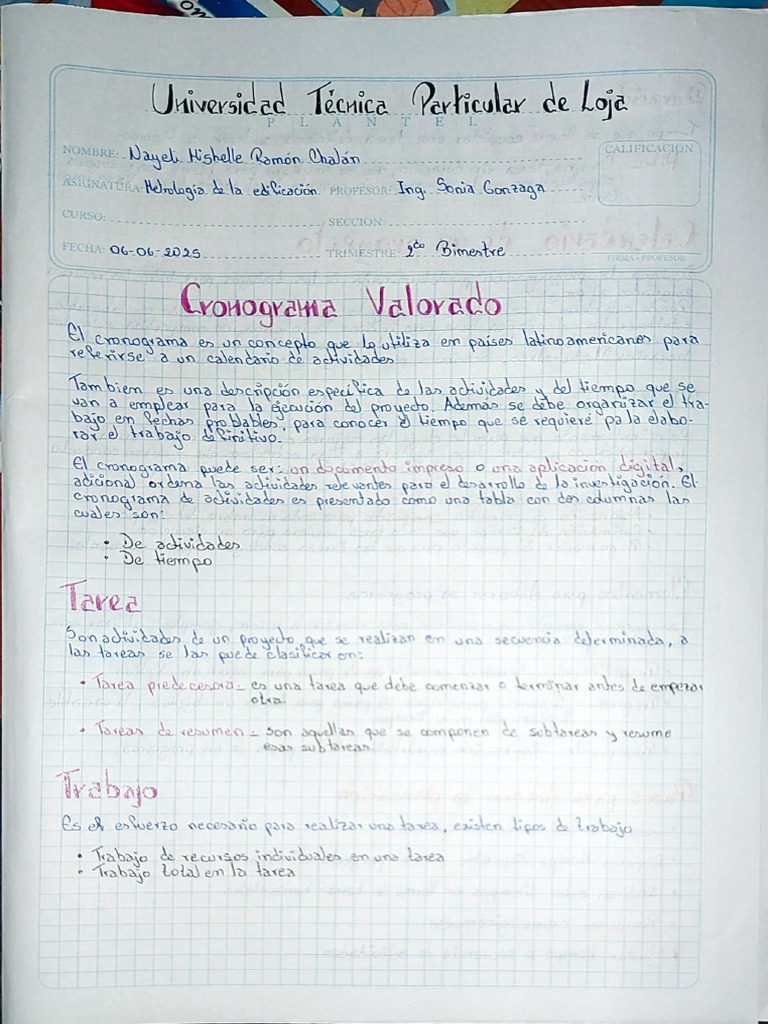 Universidad Técnica Particular de Loja
PLANTEL
NOMBRE: Nayeli Mishelle Ramón Chalán
CALIFICACION
ASIGNATURA: Metrología de la edificación PROFESOR: Ing. Sonia Gonzaga
CURSO: SECCION:
FECHA: 06-06-2025 TRIMESTRE: 2do Bimestre
FIRMA - PROFESOR
Cronograma Valorado
El cronograma es un concepto que lo utiliza en países latinoamericanos para
referirse a un calendario de actividades
Tambien es una descripción específica de las actividades y del tiempo que se
van a emplear para la ejecución del proyecto. Además se debe organizar el tra-
bajo en fechas probables, para conocer el tiempo que se requiere pa la elabo-
rar el trabajo definitivo.
El cronograma puede ser: un documento impreso o una aplicación digital,
adicional ordena las actividades relevantes para el desarrollo de la investigación. El
cronograma de actividades es presentado como una tabla con dos columnas las
cuales son:
• De actividades
• De tiempo
Tarea
Son actividades de un proyecto que se realizan en una secuencia determinada, a
las tareas se las puede clasificar en:
• Tarea predecesora = es una tarea que debe comenzar o terminar antes de empezar
otra.
• Tareas de resumen = son aquellas que se componen de subtareas y resume
esas subtareas.
Trabajo
Es el esfuerzo necesario para realizar una tarea, existen tipos de trabajo
• Trabajo de recursos individuales en una tarea
• Trabajo total en la tarea